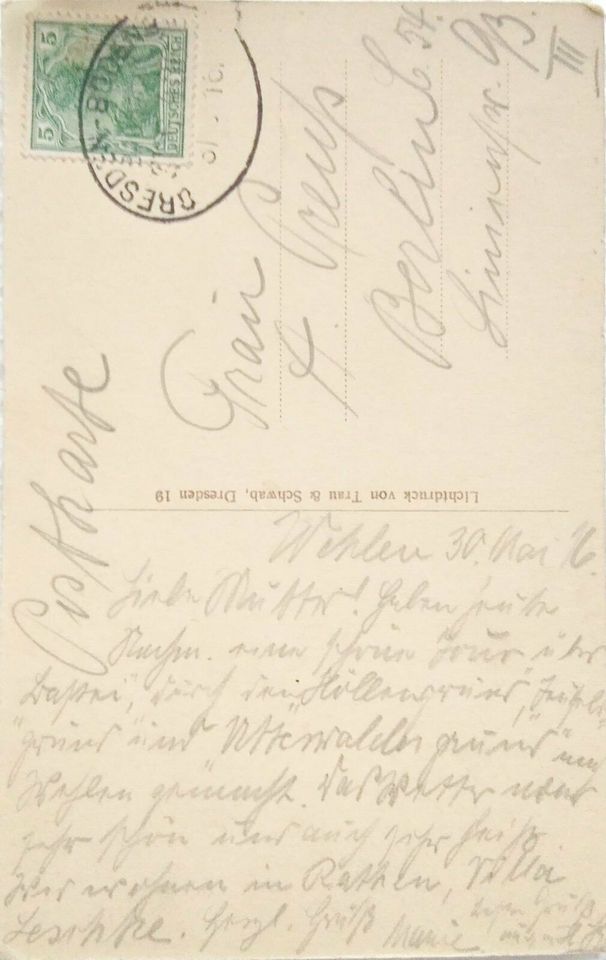 5
5
DEUTSCHES REICH
DRESDEN-BODENB
16
Postkarte
Frau
A. Preuß
Berlin C. 54.
Linienstr. 93.
III
Lichtdruck von Trau & Schwab, Dresden 19
Wehlen 30. Mai 16.
Liebe Mutter! Haben heute
Nachm. eine schöne Tour über
Bastei, durch den "Höllengrund", "Teufels-
grund" und "Uttewalder grund" nach
Wehlen gemacht. Das Wetter war
sehr schön und auch sehr heiß.
Wir wohnen in Rathen, Villa
Leschke. Herzl. Gruß Marie